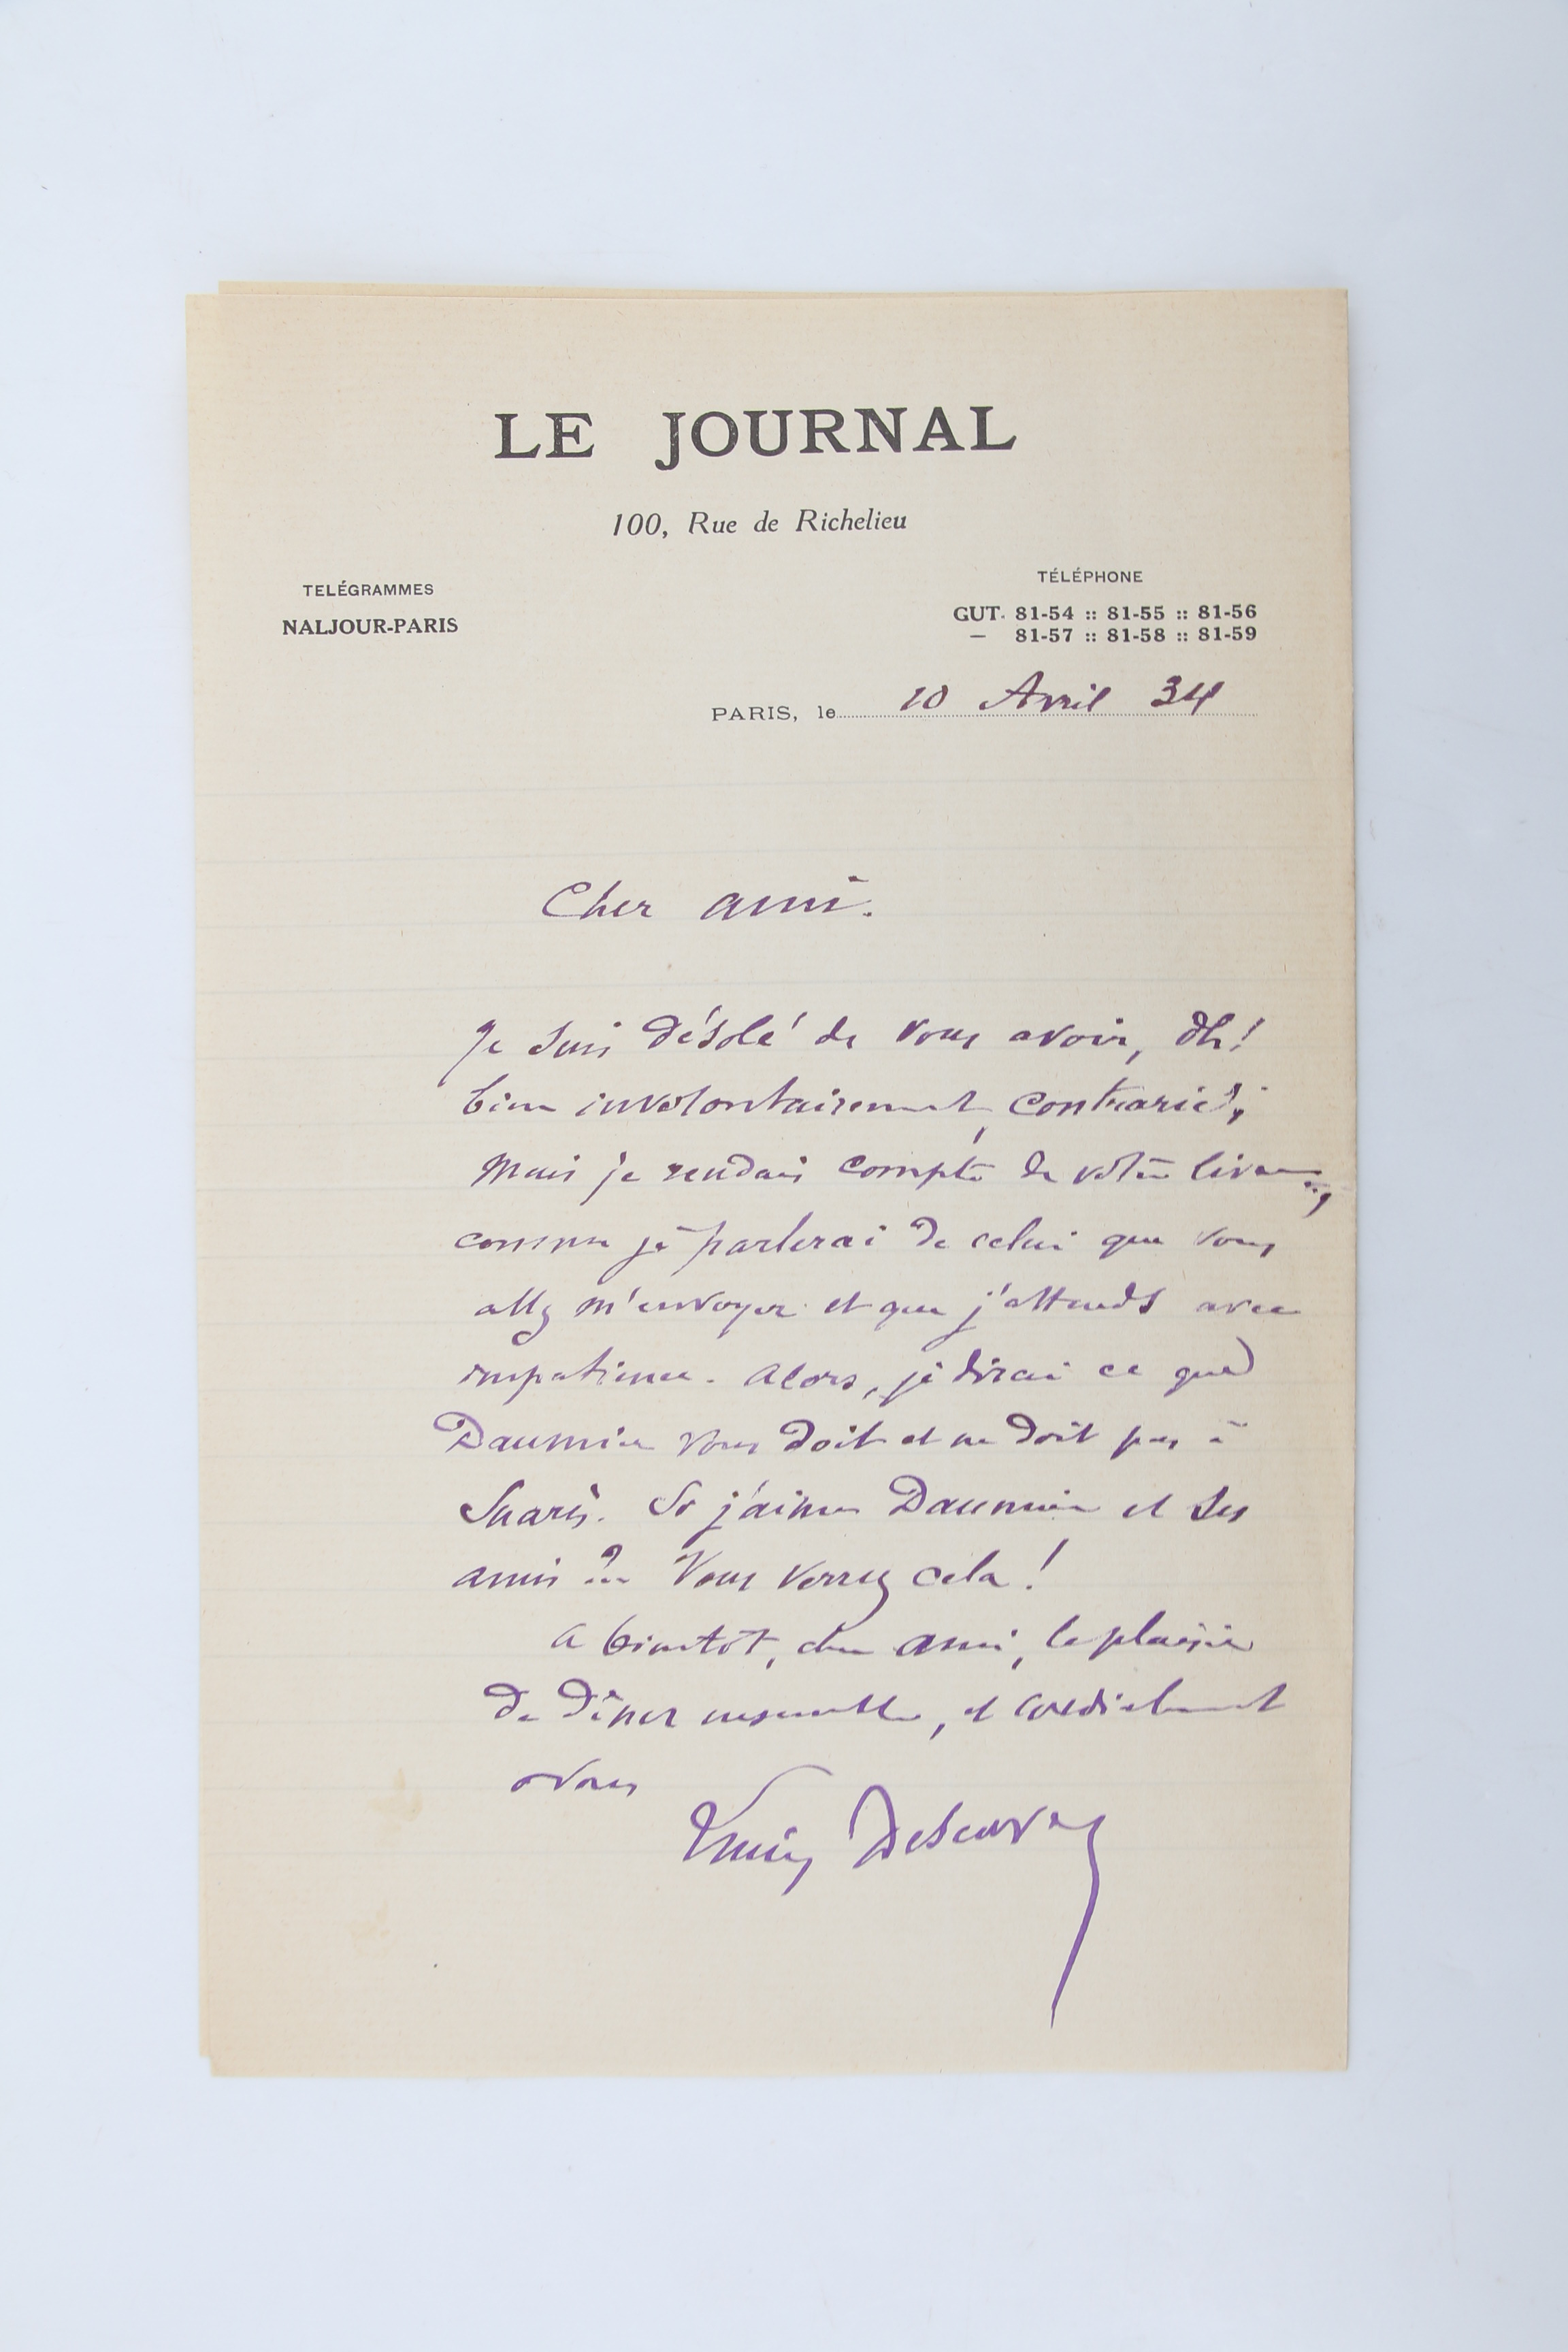 LE JOURNAL
100, Rue de Richelieu
TELÉGRAMMES
NALJOUR-PARIS
TÉLÉPHONE
GUT. 81-54 :: 81-55 :: 81-56
— 81-57 :: 81-58 :: 81-59
PARIS, le 10 Avril 34
Cher ami.
Je suis désolé de vous avoir, oh!
bien involontairement, contrarié;
mais je rendais compte de votre livre,
comme je parlerai de celui que vous
allez m'envoyer et que j'attends avec
impatience. Alors, je dirai ce que
Daumier vous doit et ne doit pas à
Suarès. Si j'aime Daumier et ses
amis ?... Vous verrez cela !
A bientôt, cher ami, le plaisir
de dîner ensemble, et cordialement
à vous
Lucien Descaves